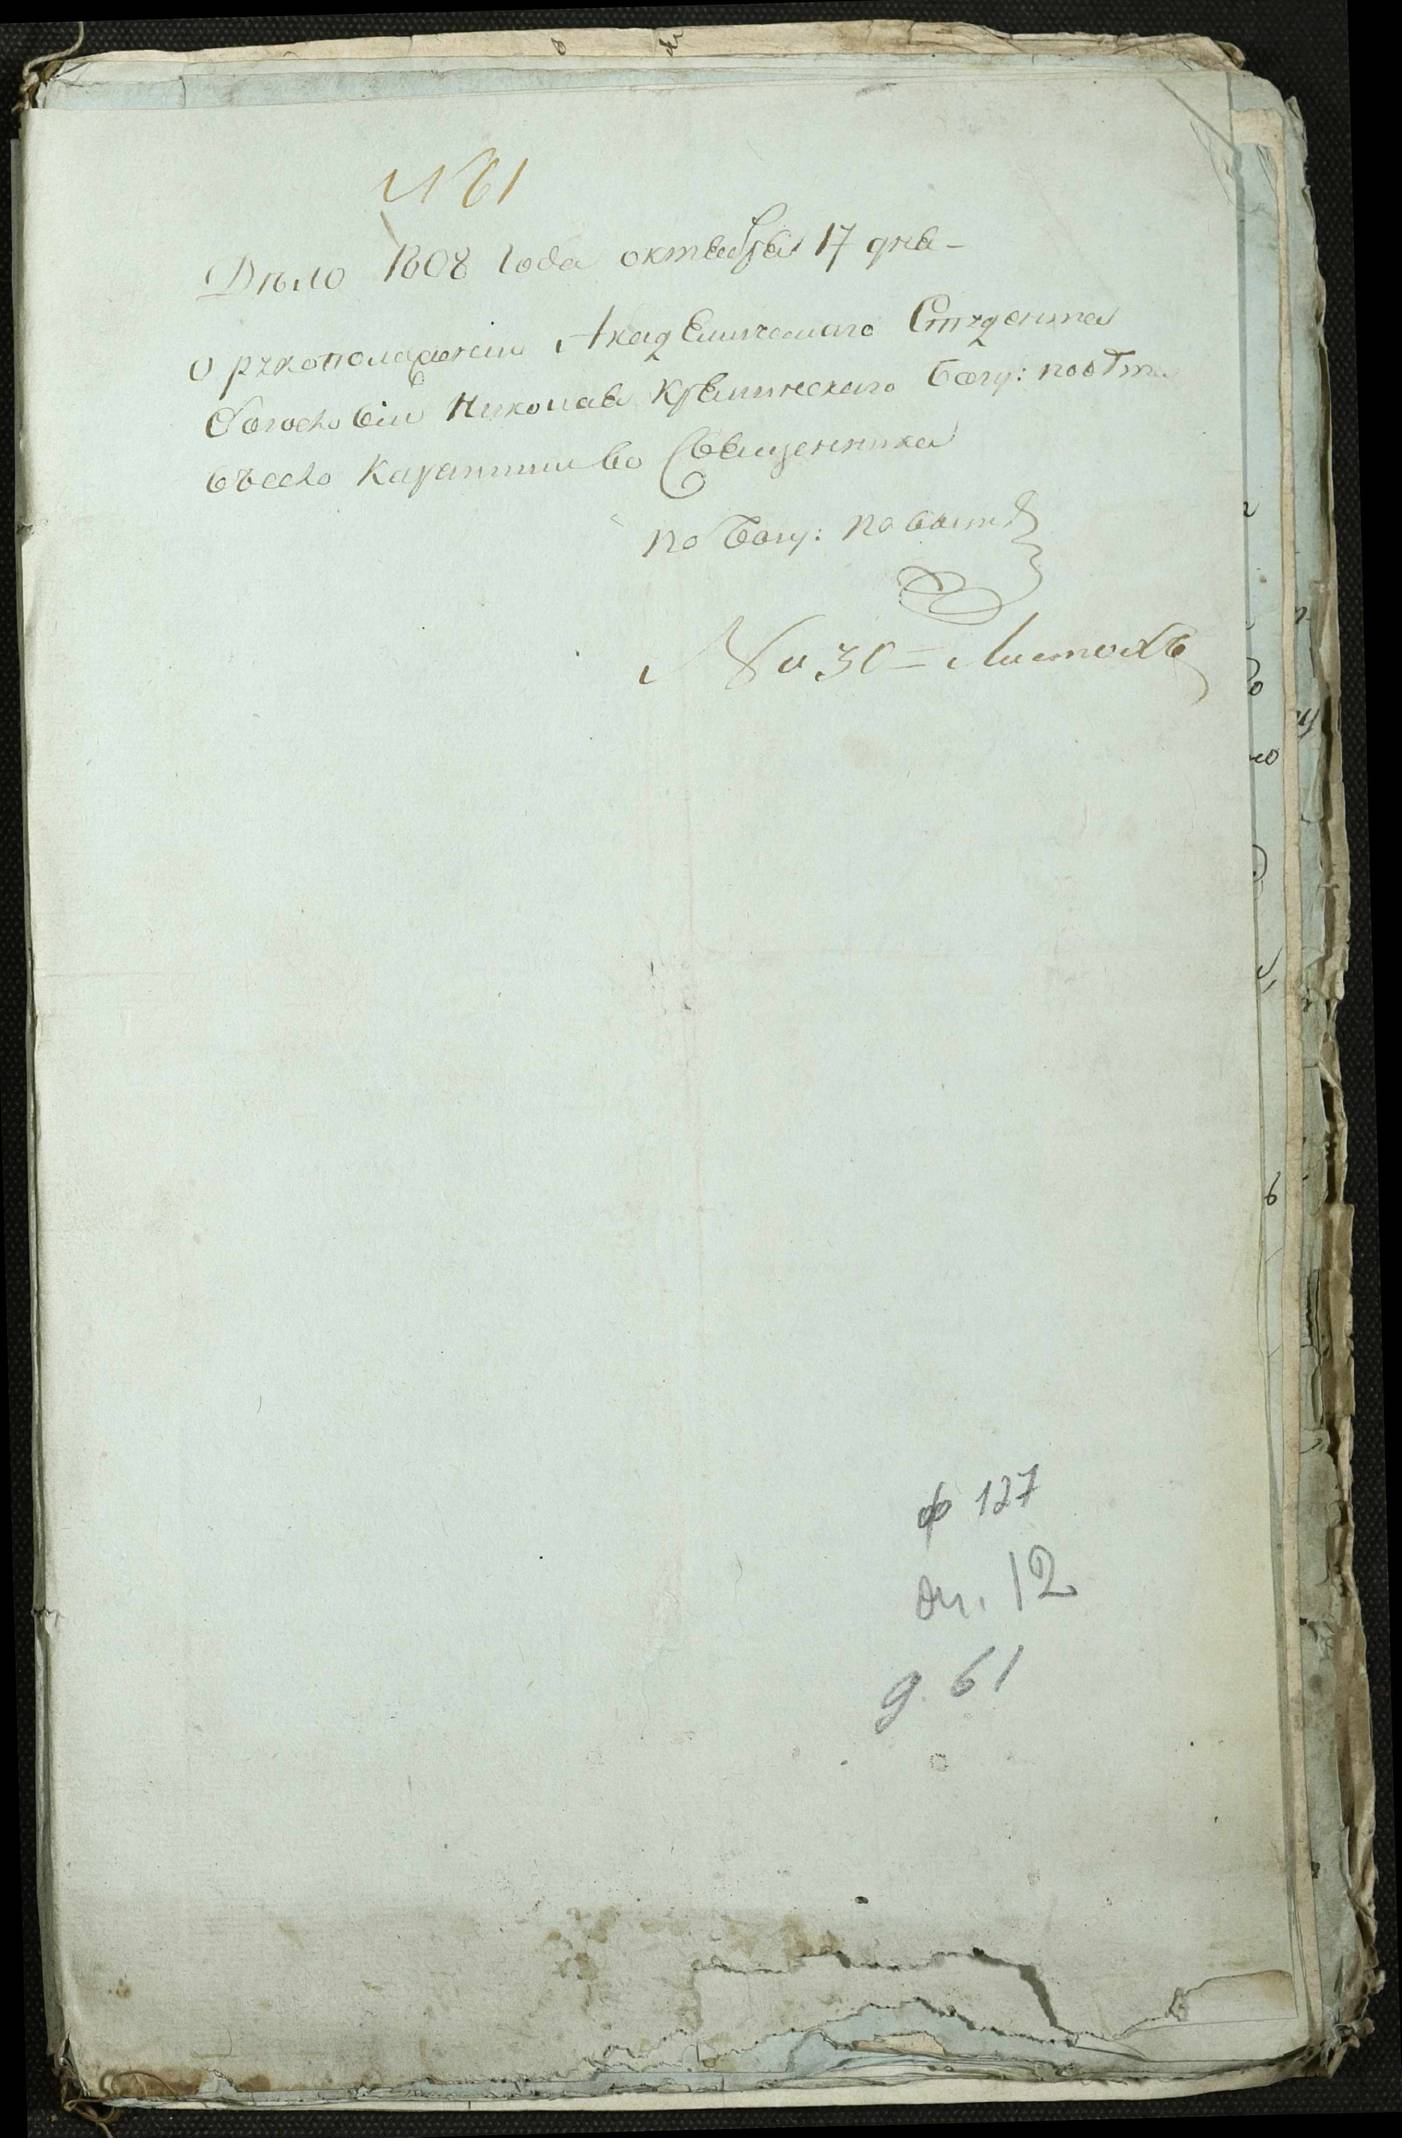 № 61
Дѣло 1808 года октября 17 дня —
о рукоположеніи Академическаго Студента
богословіи Николая Креминскаго богу: повѣта
въ село Карапиши во Священника
по богу: повѣту
На 30 = листахъ
ф 127
оп. 12
д. 61